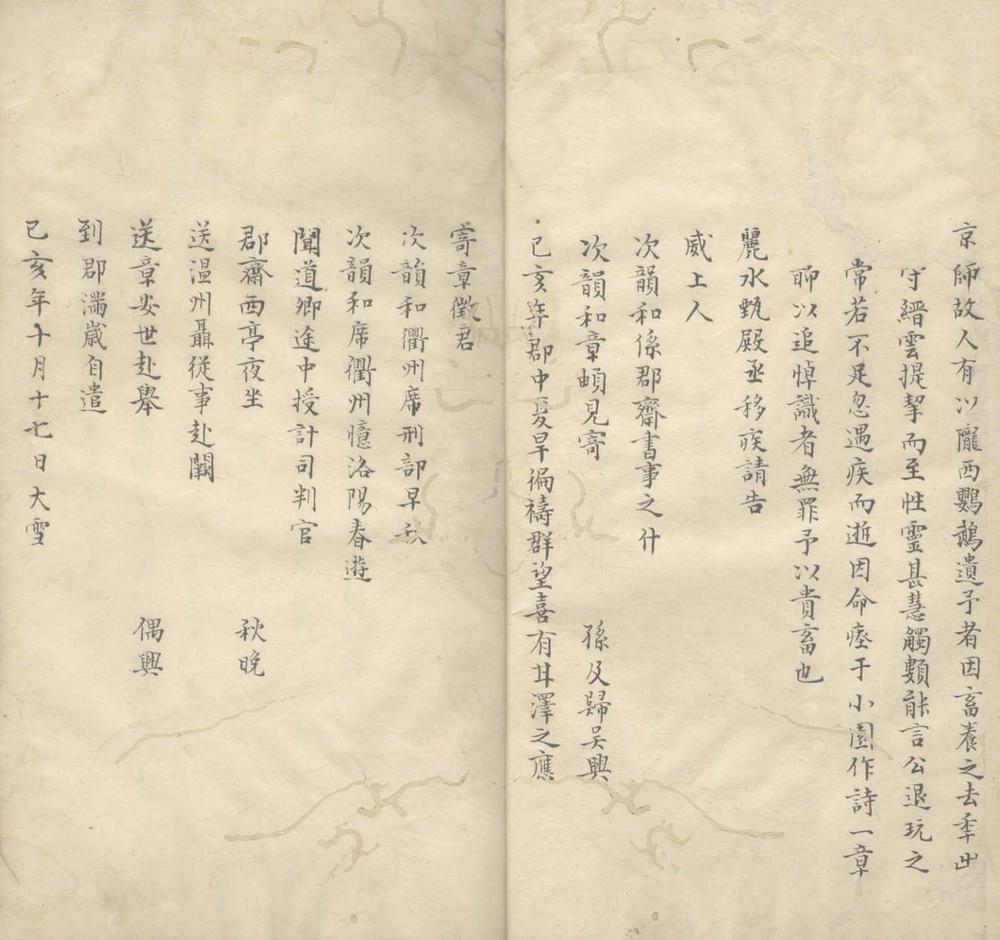 京師故人有以隴西鸚鵡遺予者因畜養之去年出
守縉雲提挈而至性靈甚慧觸類能言公退玩之
常若不足忽遇疾而逝因命瘞于小園作詩一章
聊以追悼識者無罪予以貴畜也
麗水甄殿丞移疾請告
威上人
次韻和孫郡齋書事之什
次韻和章頔見寄 孫及歸吴興
己亥年郡中夏旱徧禱群望喜有甘澤之應
寄章徵君
次韻和衢州席刑部早秋
次韻和席衢州憶洛陽春遊
聞道卿途中授計司判官
郡齋西亭夜坐 秋晚
送温州聶從事赴闕
送章安世赴舉 偶興
到郡滿歲自遣
己亥年十月十七日大雪